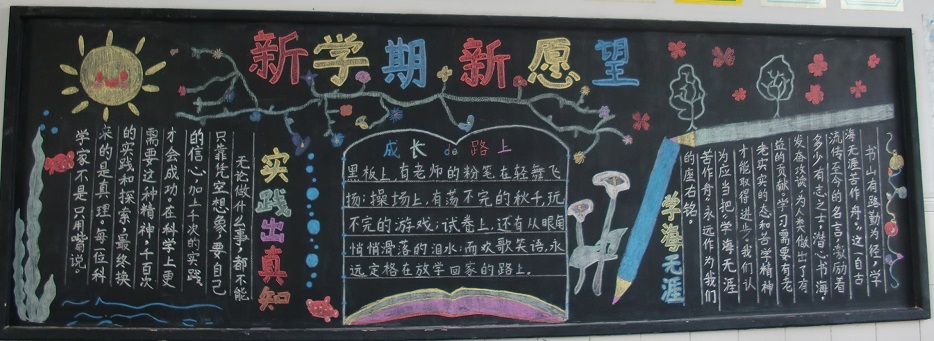 新学期新愿望
书山有路勤为径,学
海无涯苦作舟。”这一自古
流传至今的名言,激励着
多少有志之士,潜心书海,
发奋攻读,为人类做出了有
益的贡献。学习需要有老
老实实的态和苦学精神
才能取得进步,我们认
为应当把“学海无涯
苦作舟”永远作为我们
的座右铭。
学海无涯
成长de路上
黑板上,有老师的粉笔在轻舞飞
扬;操场上,有荡不完的秋千,玩
不完的游戏;试卷上,还有从眼角
悄悄滑落的泪水;而欢歌笑语,永
远定格在放学回家的路上。
实践出真知
无论做什么事,都不能
只靠凭空想象,要自己
的信心加上千次的实践
才会成功。在科学上更
需要这种精神,千百次
的实践和探索,最终换
来的是真理,每一位科
学家不是只用嘴说。